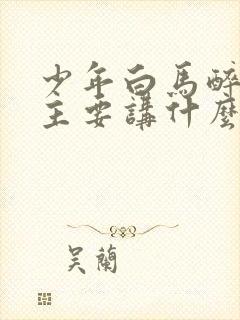 少年白馬醉
主要講什麼
吴蘭